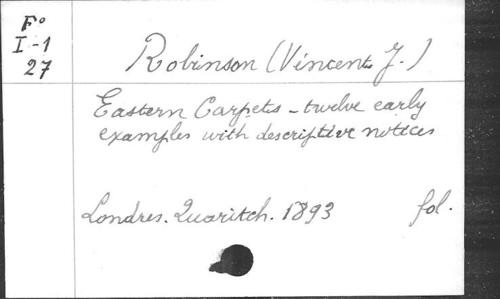 Fº
I-1
27
Robinson (Vincent J.)
Eastern Carpets - twelve early
examples with descriptive notices
Londres. Quaritch. 1893 fol.